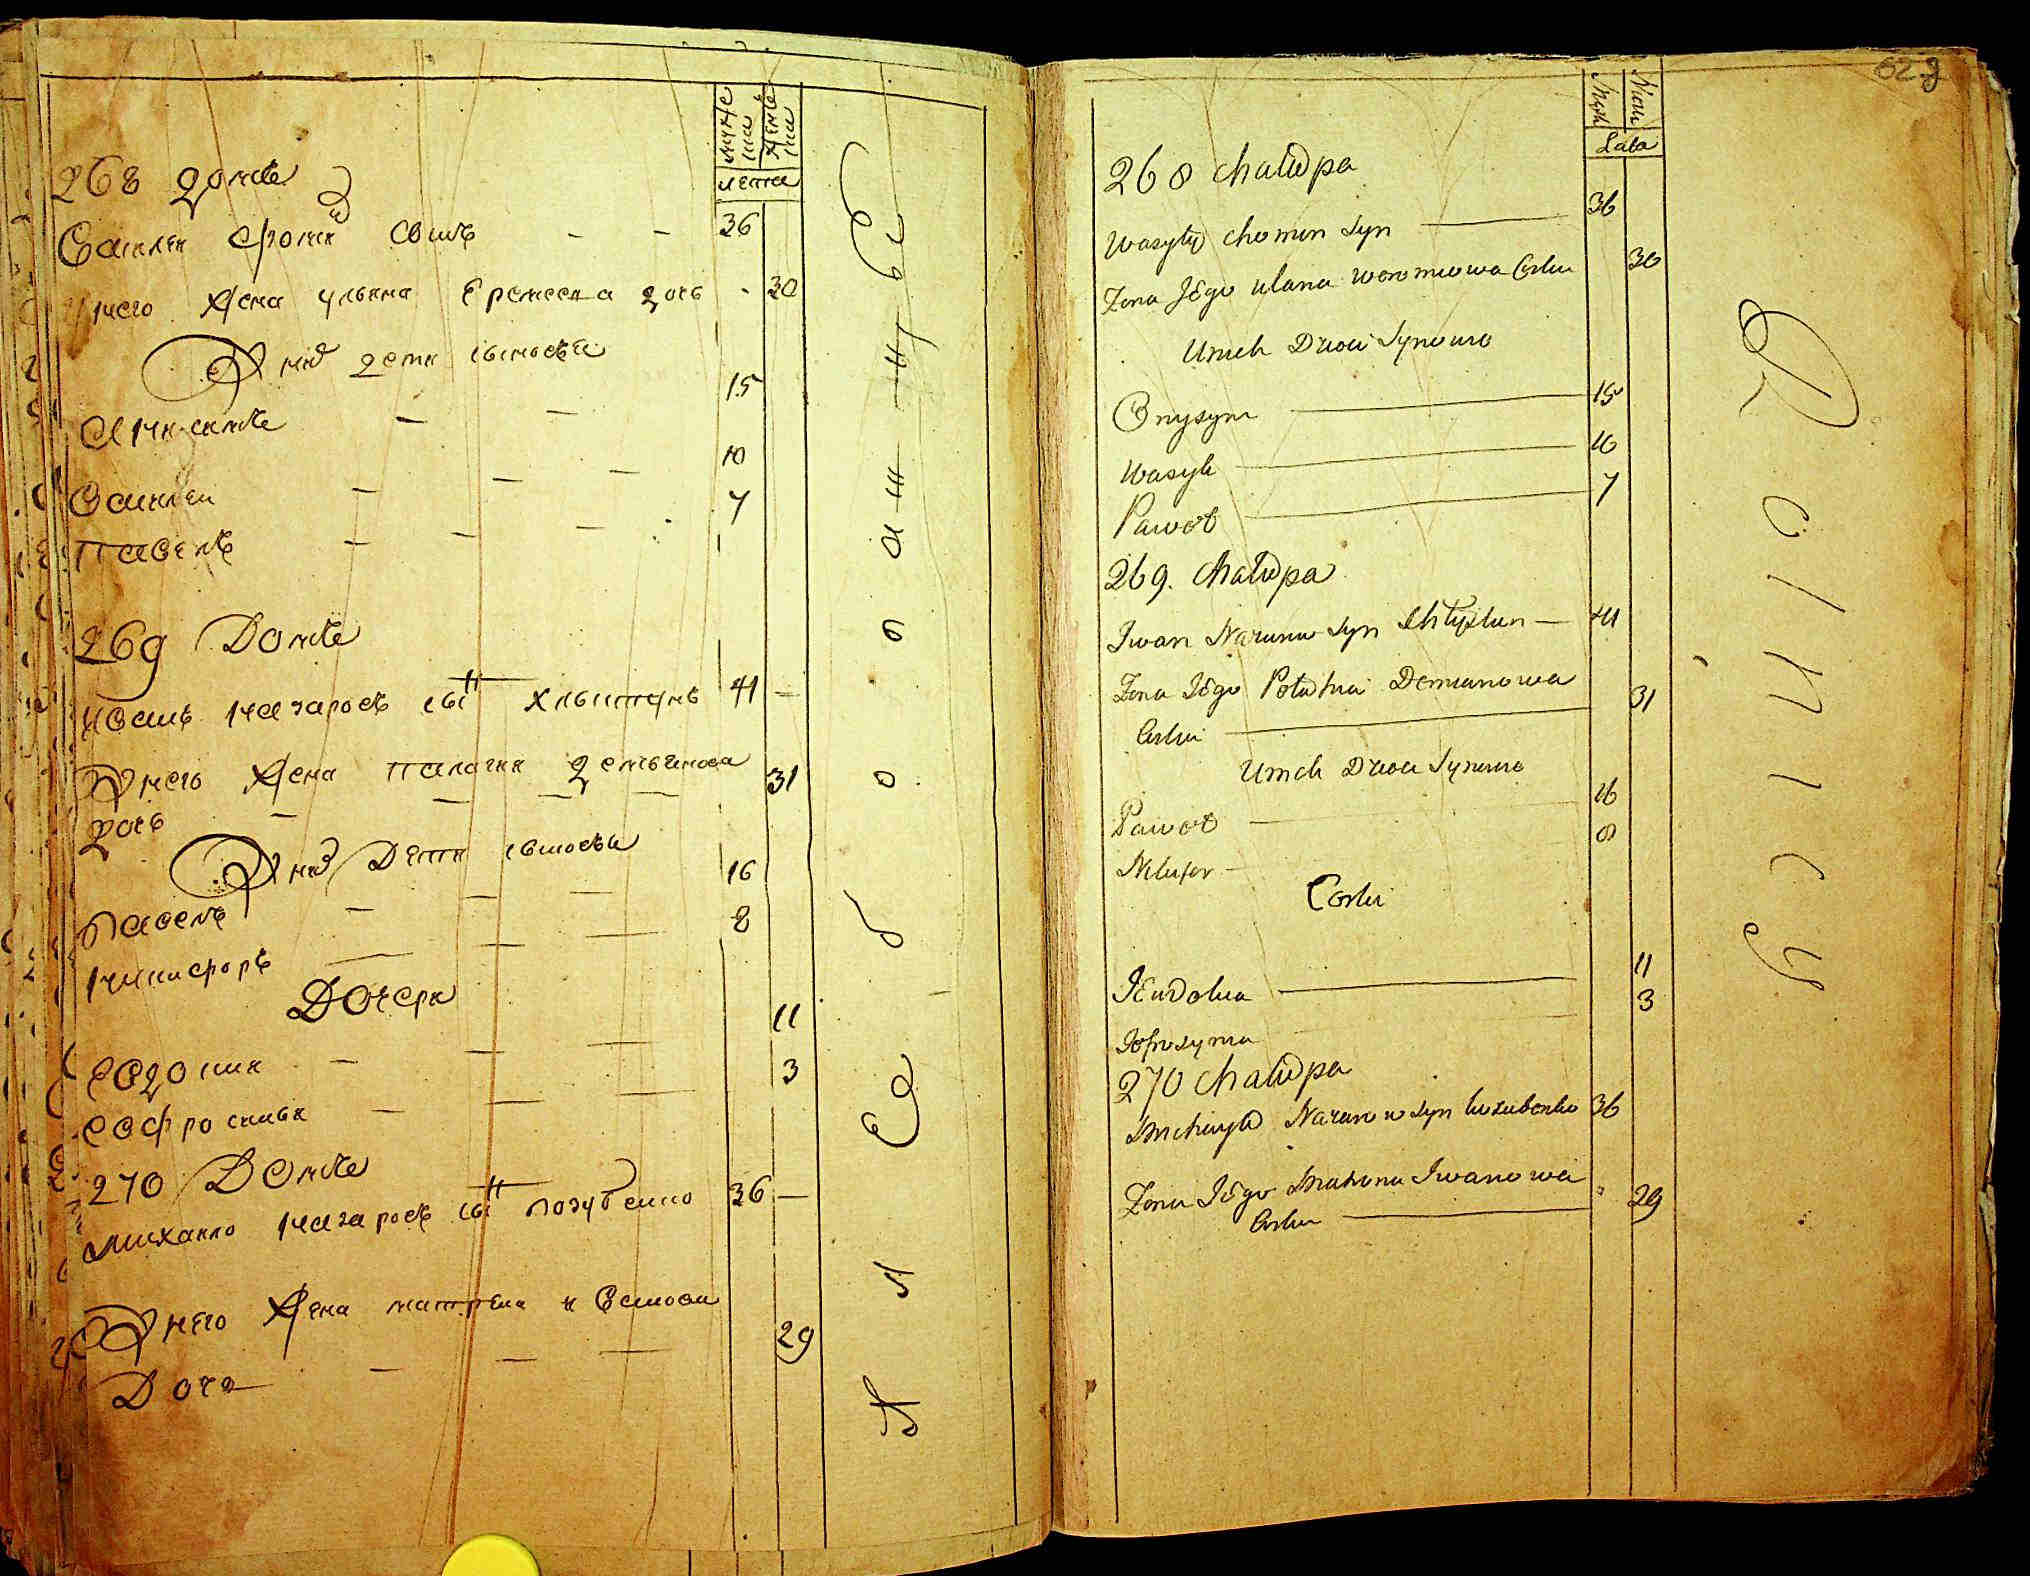 мужеска
женска
лета
268 домъ
Василей Фоминъ сынъ 36
У него жена Ульяна Еремеева дочь 30
У них дети сыновья
Анисимъ 15
Василей 10
Павелъ 7
269 Домъ
Иванъ Назаровъ сынъ Хлыстунъ 41
У него жена Палагия Демьянова 31
дочь
У них Дети сыновья
Павелъ 16
Никифоръ 8
Дочери
Евдокия 11
Евфросинья 3
270 Домъ
Михайло Назаровъ сынъ Лозубенко 36
У него Жена матрена Иванова
Дочь 29
62
Męsk
Nieu
Lata
268 Chałupa
Wasylij Chomin Syn 36
Żona Jego Ulana Woromiowa Corka 30
Umch Dzieci Synowie
Onysym 15
Wasyli 10
Paweł 7
269. Chałupa
Iwan Nazarow Syn Chłystun 41
Żona Jego Połachia Demianowa 31
Corka
Umch Dzieci Synowie
Paweł 16
Nikifor 8
Corki
Jewdokia 11
Jefrosynia 3
270 Chałupa
Michayło Nazarow Syn Łozubenko 36
Żona Jego Matrona Iwanowa 29
Corka
Rolnicy